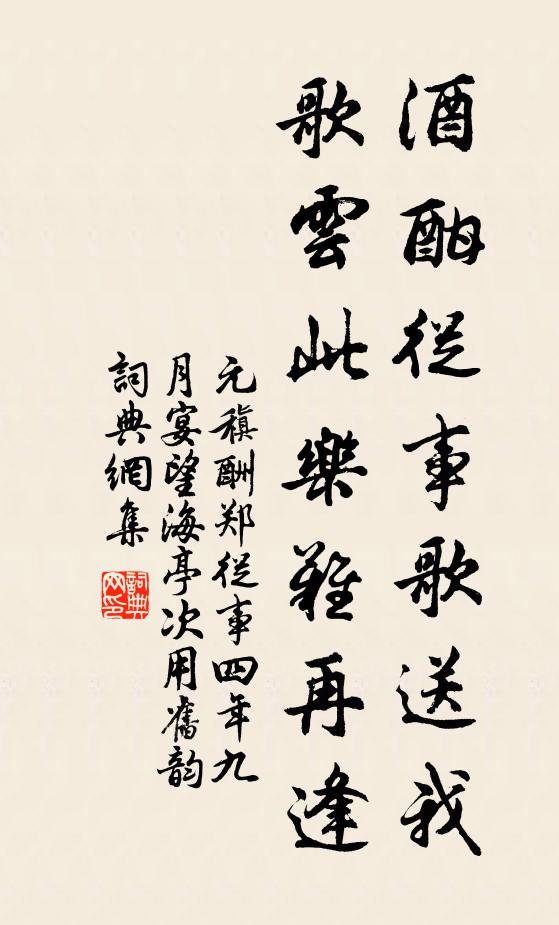 酒酣從事歌送我
歌雲此樂難再逢
元稹酬郑從事四年九
月宴望海亭次用舊韵
詞典網集
詞典网印